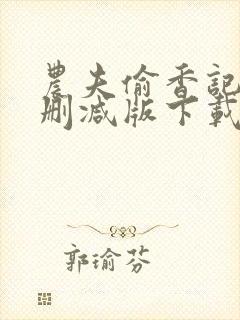 農夫偷香記
删減版下載
郭瑜芬